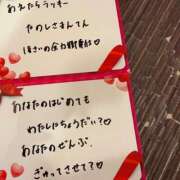 あえたらラッキー
たのしさまんてん
ほさいの全力接客も♡
あなたのはじめても
わたしにちょうだい?♡
あなたのぜんぶ、
ぎゅってさせて??♡